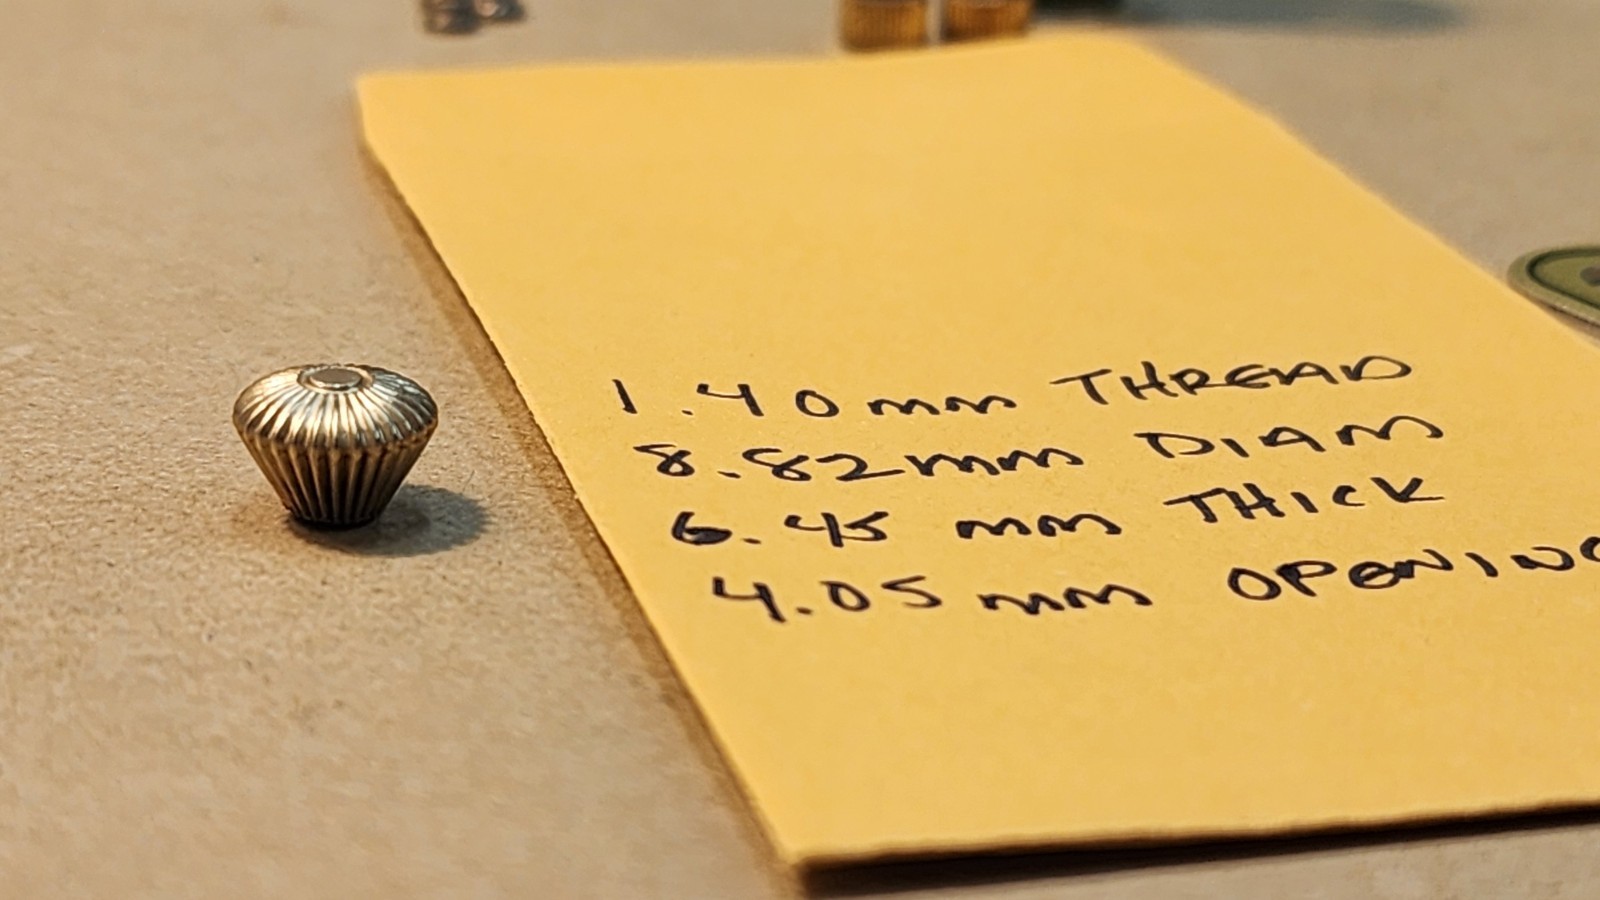 1.40mm THREAD
8.82mm DIAM
6.45 mm THICK
4.05 mm OPENING